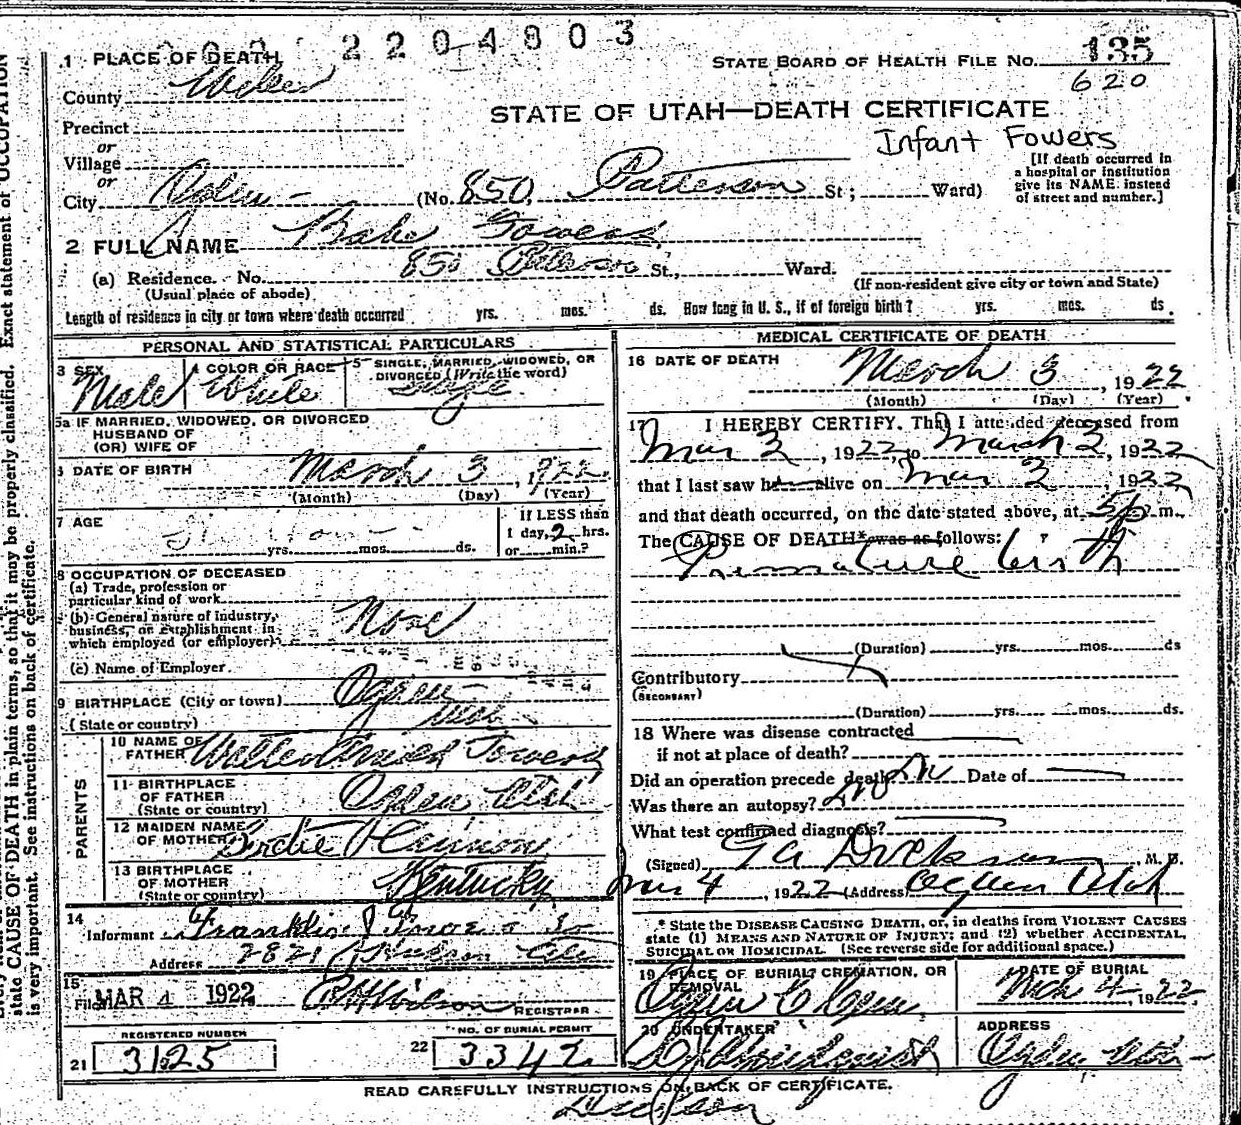 2204803
1 PLACE OF DEATH
STATE BOARD OF HEALTH FILE No. 135
620
County Weber
STATE OF UTAH—DEATH CERTIFICATE
Precinct
Infant Fowers
or
Village
or
City Ogden (No. 850 Patterson St; Ward)
[If death occurred in
a hospital or institution
give its NAME instead
of street and number.]
2 FULL NAME Babe Fowers
(a) Residence. No. 850 Patterson St., Ward.
(Usual place of abode)
(If non-resident give city or town and State)
Length of residence in city or town where death occurred yrs. mos. ds. How long in U. S., if of foreign birth? yrs. mos. ds.
PERSONAL AND STATISTICAL PARTICULARS
3 SEX
Male
4 COLOR OR RACE
White
5 SINGLE, MARRIED, WIDOWED, OR
DIVORCED (Write the word)
5a IF MARRIED, WIDOWED, OR DIVORCED
HUSBAND OF
(OR) WIFE OF
6 DATE OF BIRTH March 3, 1922
(Month) (Day) (Year)
7 AGE
yrs. mos. ds.
If LESS than
1 day, 2 hrs.
or min.?
8 OCCUPATION OF DECEASED
(a) Trade, profession or
particular kind of work
(b) General nature of industry,
business, or establishment in
which employed (or employer)
None
(c) Name of Employer
9 BIRTHPLACE (City or town) Ogden
(State or country) Utah
PARENTS
10 NAME OF
FATHER Fowers
11 BIRTHPLACE
OF FATHER
(State or country) Ogden Utah
12 MAIDEN NAME
OF MOTHER
13 BIRTHPLACE
OF MOTHER
(State or country) Kentucky
14
Informant Franklin J
Address 2821
15
Filed MAR 4 1922 Wilson
REGISTRAR
REGISTERED NUMBER
21 3125
NO. OF BURIAL PERMIT
22 3342
MEDICAL CERTIFICATE OF DEATH
16 DATE OF DEATH
March 3, 1922
(Month) (Day) (Year)
17 I HEREBY CERTIFY. That I attended deceased from
Mar 3, 1922, to March 3, 1922
that I last saw h alive on Mar 3, 1922
and that death occurred, on the date stated above, at 5 p. m.
The CAUSE OF DEATH* was as follows:
Premature birth
(Duration) yrs. mos. ds
Contributory
(SECONDARY)
(Duration) yrs. mos. ds.
18 Where was disease contracted
if not at place of death?
Did an operation precede death? No Date of
Was there an autopsy? No
What test confirmed diagnosis?
(Signed) Dickson, M. D.
Mar 4, 1922 (Address) Ogden Utah
* State the DISEASE CAUSING DEATH, or, in deaths from VIOLENT CAUSES
state (1) MEANS AND NATURE OF INJURY; and (2) whether ACCIDENTAL,
SUICIDAL OR HOMICIDAL. (See reverse side for additional space.)
19 PLACE OF BURIAL, CREMATION, OR
REMOVAL
Ogden
DATE OF BURIAL
Mch 4, 1922
20 UNDERTAKER
ADDRESS
Ogden Utah
READ CAREFULLY INSTRUCTIONS ON BACK OF CERTIFICATE.
state CAUSE OF DEATH in plain terms, so that it may be properly classified. Exact statement of OCCUPATION
is very important. See instructions on back of certificate.